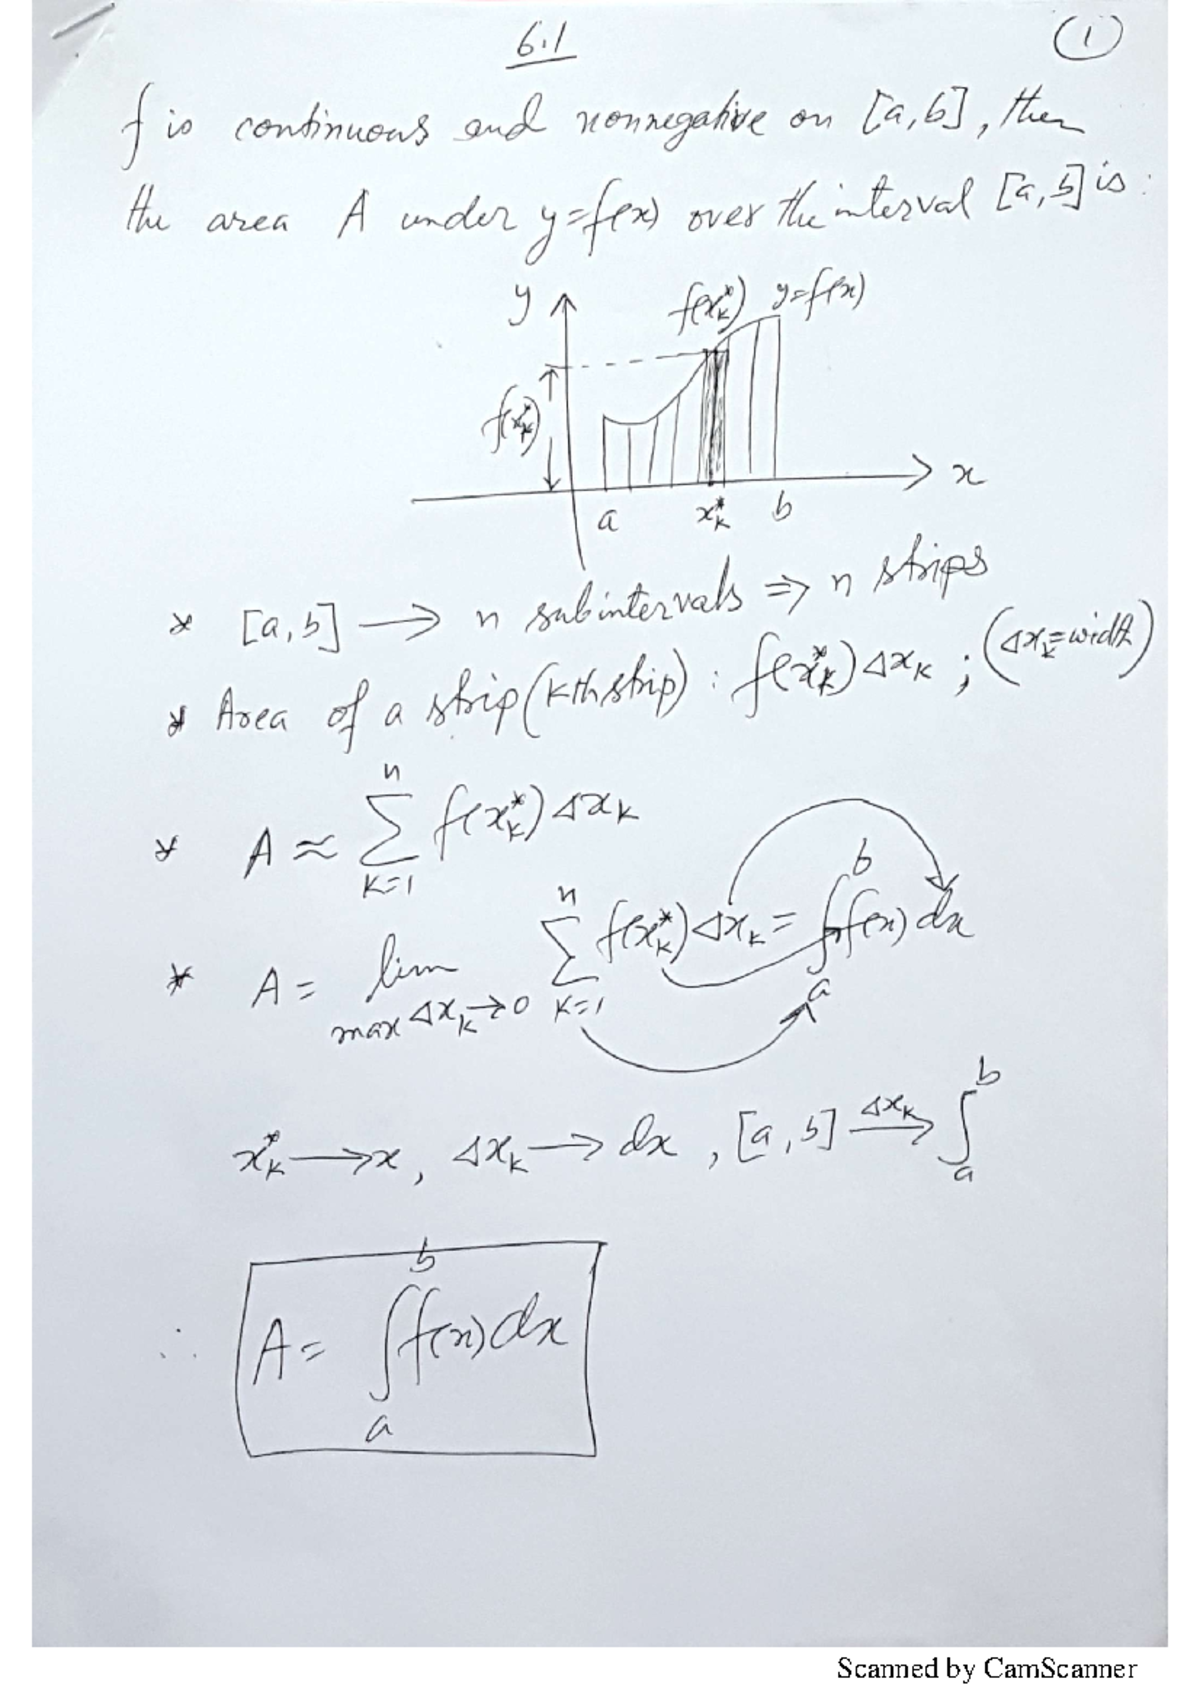 6.1
1
f is continuous and nonnegative on [a,b], then
the area A under y=f(x) over the interval [a,b] is:
y
f(x_k^*) y=f(x)
f(x_k^*)
x
a x_k^* b
* [a,b] ⟶ n subintervals ⇒ n strips
* Area of a strip (kth strip) : f(x_k^*) Δx_k ; (Δx_k=width)
* A ≈ ∑_{k=1}^{n} f(x_k^*) Δx_k
* A = lim_{max Δx_k→0} ∑_{k=1}^{n} f(x_k^*) Δx_k = ∫_a^b f(x) dx
x_k^* ⟶ x, Δx_k ⟶ dx, [a,b] \xrightarrow{Δx_k} ∫_a^b
∴ A = ∫_a^b f(x) dx
Scanned by CamScanner